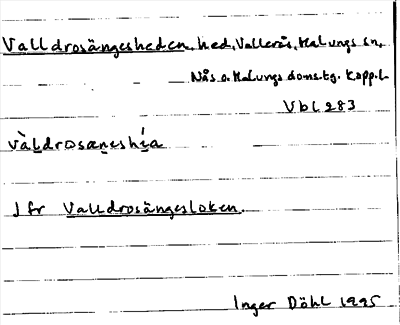 Valldrosängesheden, hed, Vallerås, Malungs sn,
Nås o. Malungs doms.tg. Kopp.l.
Vbl 283
vàldrosæneshı́a
Jfr Valldrosängesloken.
Inger Döhl 1995